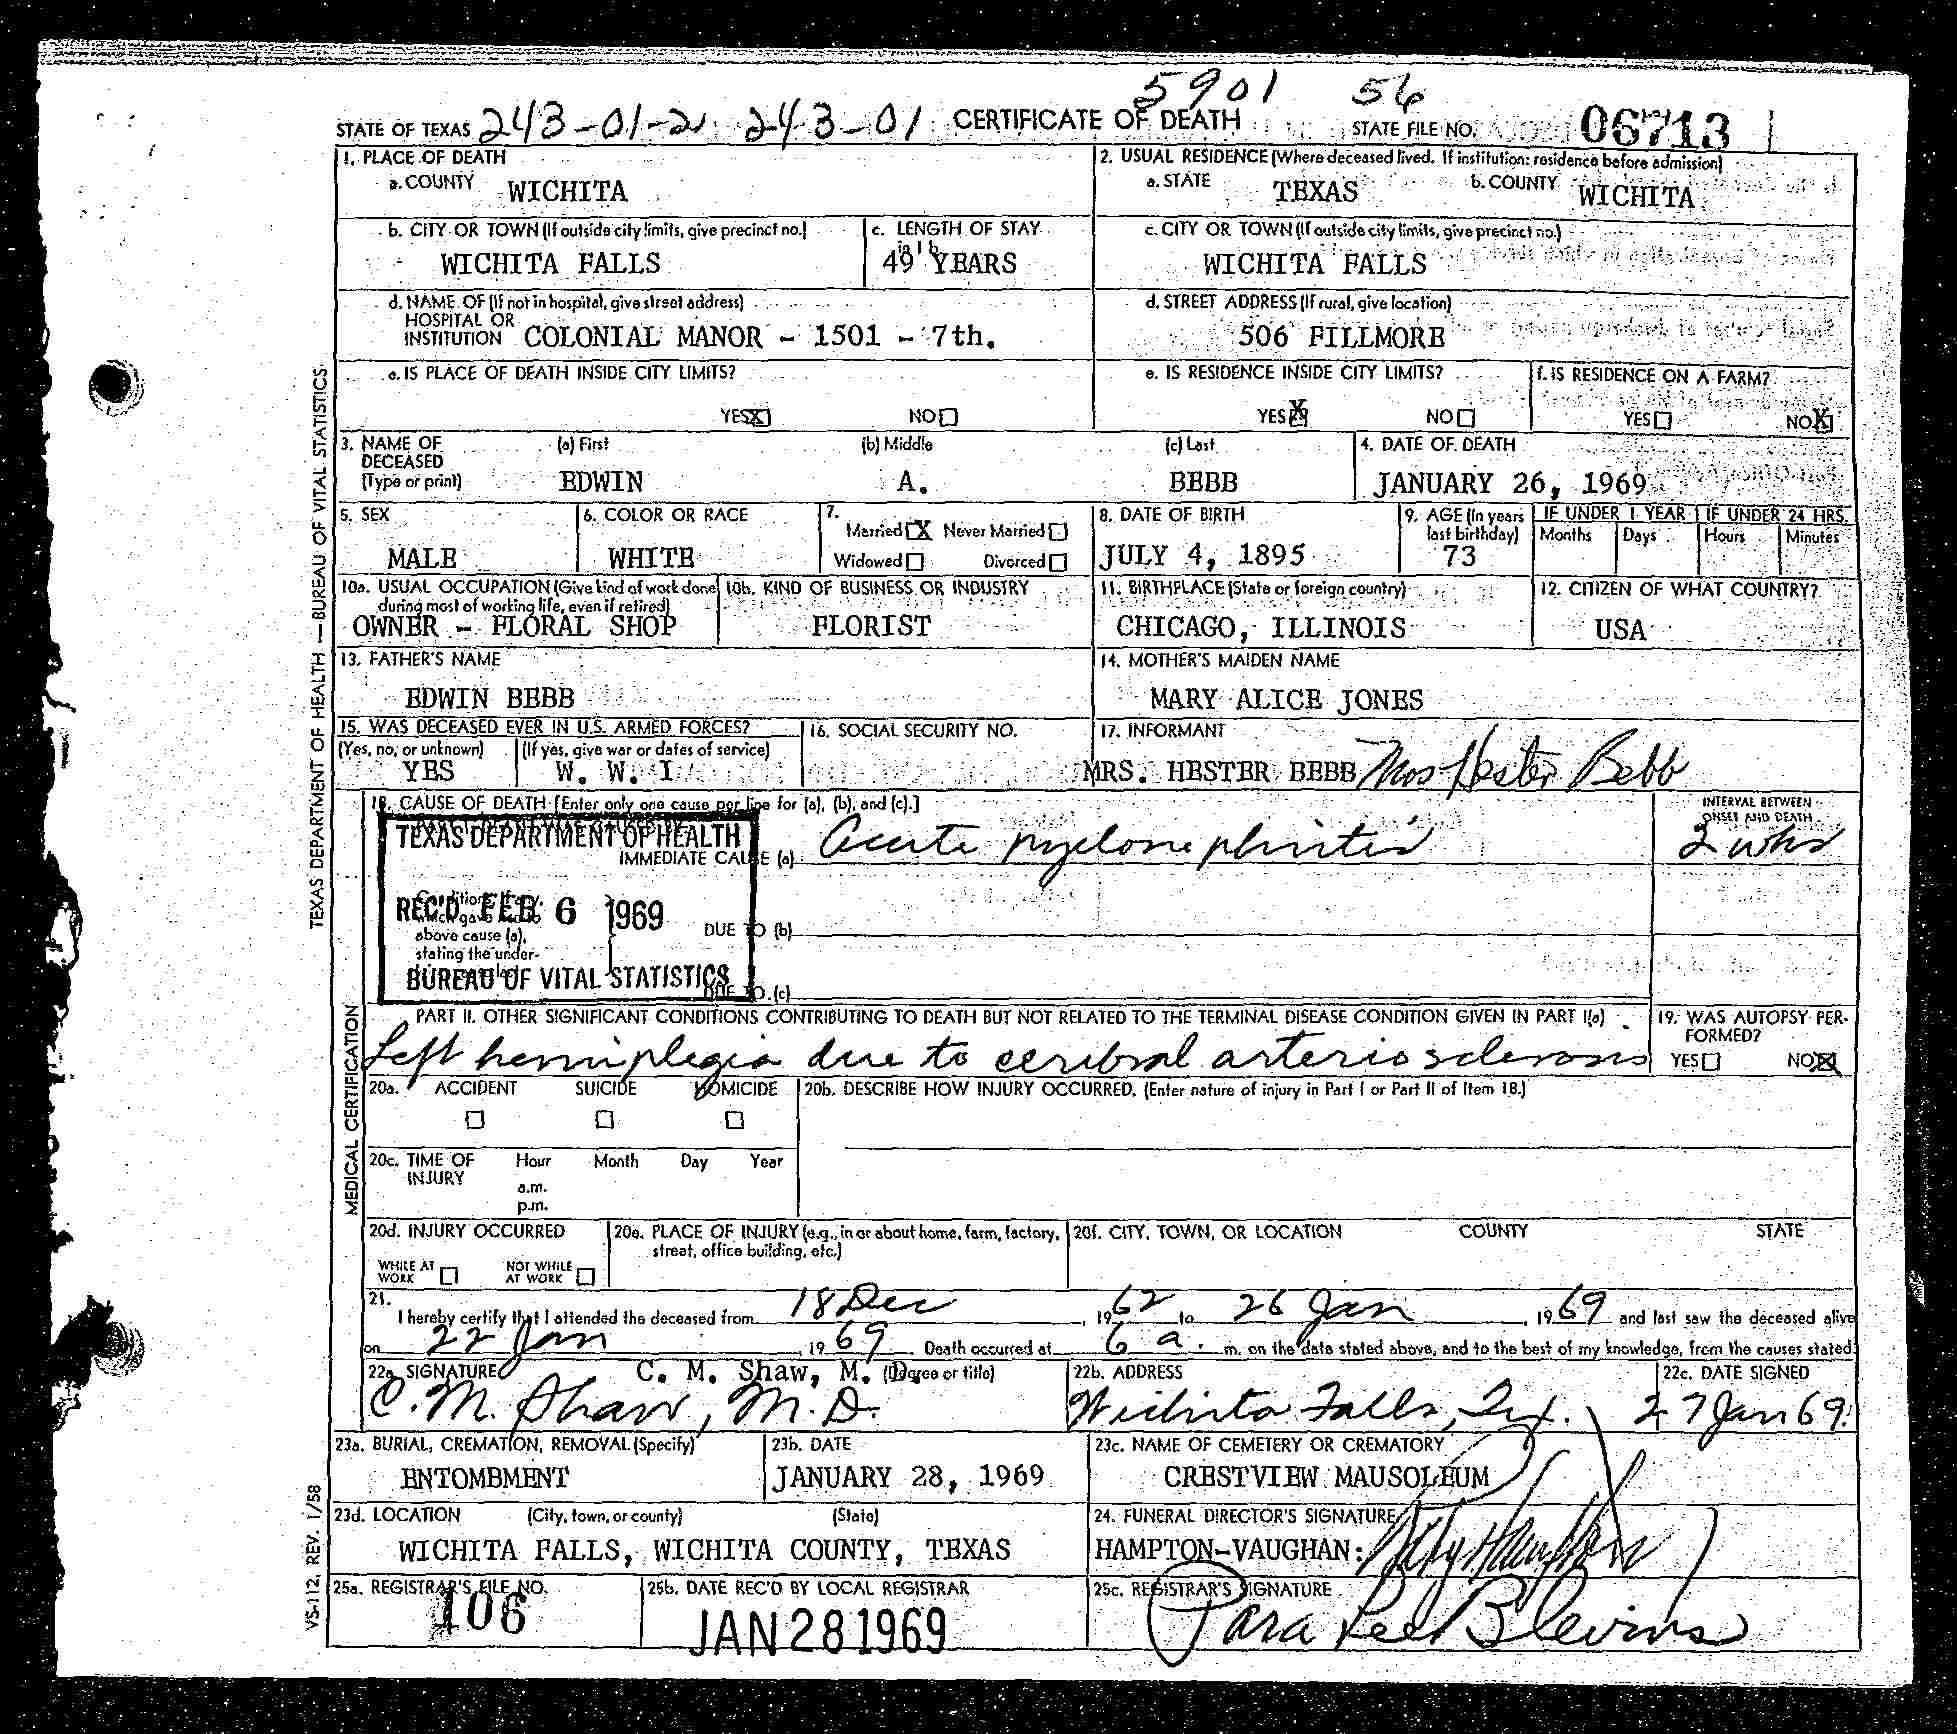 5901 56
STATE OF TEXAS 243-01-2 243-01 CERTIFICATE OF DEATH STATE FILE NO. 06713
1. PLACE OF DEATH
a. COUNTY WICHITA
2. USUAL RESIDENCE (Where deceased lived. If institution: residence before admission)
a. STATE TEXAS b. COUNTY WICHITA
b. CITY OR TOWN (If outside city limits, give precinct no.) WICHITA FALLS
c. LENGTH OF STAY in 1b 49 YEARS
c. CITY OR TOWN (If outside city limits, give precinct no.) WICHITA FALLS
d. NAME OF (If not in hospital, give street address)
HOSPITAL OR
INSTITUTION COLONIAL MANOR - 1501 - 7th.
d. STREET ADDRESS (If rural, give location)
506 FILLMORE
e. IS PLACE OF DEATH INSIDE CITY LIMITS?
YES X NO
e. IS RESIDENCE INSIDE CITY LIMITS?
YES X NO
f. IS RESIDENCE ON A FARM?
YES NO X
3. NAME OF DECEASED (Type or print)
(a) First (b) Middle (c) Last
EDWIN A. BEBB
4. DATE OF DEATH
JANUARY 26, 1969
5. SEX
MALE
6. COLOR OR RACE
WHITE
7.
Married X Never Married
Widowed Divorced
8. DATE OF BIRTH
JULY 4, 1895
9. AGE (In years last birthday)
73
IF UNDER 1 YEAR IF UNDER 24 HRS.
Months Days Hours Minutes
10a. USUAL OCCUPATION (Give kind of work done during most of working life, even if retired)
OWNER - FLORAL SHOP
10b. KIND OF BUSINESS OR INDUSTRY
FLORIST
11. BIRTHPLACE (State or foreign country)
CHICAGO, ILLINOIS
12. CITIZEN OF WHAT COUNTRY?
USA
13. FATHER'S NAME
EDWIN BEBB
14. MOTHER'S MAIDEN NAME
MARY ALICE JONES
15. WAS DECEASED EVER IN U.S. ARMED FORCES?
(Yes, no, or unknown) (If yes, give war or dates of service)
YES W. W. I
16. SOCIAL SECURITY NO.
17. INFORMANT
MRS. HESTER BEBB Mrs Hester Bebb
18. CAUSE OF DEATH [Enter only one cause per line for (a), (b), and (c).]
INTERVAL BETWEEN ONSET AND DEATH
TEXAS DEPARTMENT OF HEALTH
IMMEDIATE CAUSE (a) Acute pyelonephritis 2 wks
REC'D FEB 6 1969
Conditions, if any, which gave rise to above cause (a), stating the under-
DUE TO (b)
BUREAU OF VITAL STATISTICS
DUE TO (c)
PART II. OTHER SIGNIFICANT CONDITIONS CONTRIBUTING TO DEATH BUT NOT RELATED TO THE TERMINAL DISEASE CONDITION GIVEN IN PART I(a)
Left hemiplegia due to cerebral arteriosclerosis
19. WAS AUTOPSY PERFORMED?
YES NO X
20a. ACCIDENT SUICIDE HOMICIDE
20b. DESCRIBE HOW INJURY OCCURRED. (Enter nature of injury in Part I or Part II of Item 18.)
20c. TIME OF INJURY Hour Month Day Year
a.m.
p.m.
20d. INJURY OCCURRED
WHILE AT WORK NOT WHILE AT WORK
20e. PLACE OF INJURY (e.g., in or about home, farm, factory, street, office building, etc.)
20f. CITY, TOWN, OR LOCATION COUNTY STATE
21.
I hereby certify that I attended the deceased from 18 Dec, 1962 to 26 Jan, 1969 and last saw the deceased alive
on 22 Jan, 1969. Death occurred at 6 a. m. on the date stated above, and to the best of my knowledge, from the causes stated.
22a. SIGNATURE C. M. Shaw, M. D. (Degree or title)
C. M. Shaw, M.D.
22b. ADDRESS
Wichita Falls, Tex.
22c. DATE SIGNED
27 Jan 69
23a. BURIAL, CREMATION, REMOVAL (Specify)
ENTOMBMENT
23b. DATE
JANUARY 28, 1969
23c. NAME OF CEMETERY OR CREMATORY
CRESTVIEW MAUSOLEUM
23d. LOCATION (City, town, or county) (State)
WICHITA FALLS, WICHITA COUNTY, TEXAS
24. FUNERAL DIRECTOR'S SIGNATURE
HAMPTON-VAUGHAN:
25a. REGISTRAR'S FILE NO.
106
25b. DATE REC'D BY LOCAL REGISTRAR
JAN 28 1969
25c. REGISTRAR'S SIGNATURE
Para Lee Blevins
TEXAS DEPARTMENT OF HEALTH — BUREAU OF VITAL STATISTICS
MEDICAL CERTIFICATION
VS-112, REV. 1/58